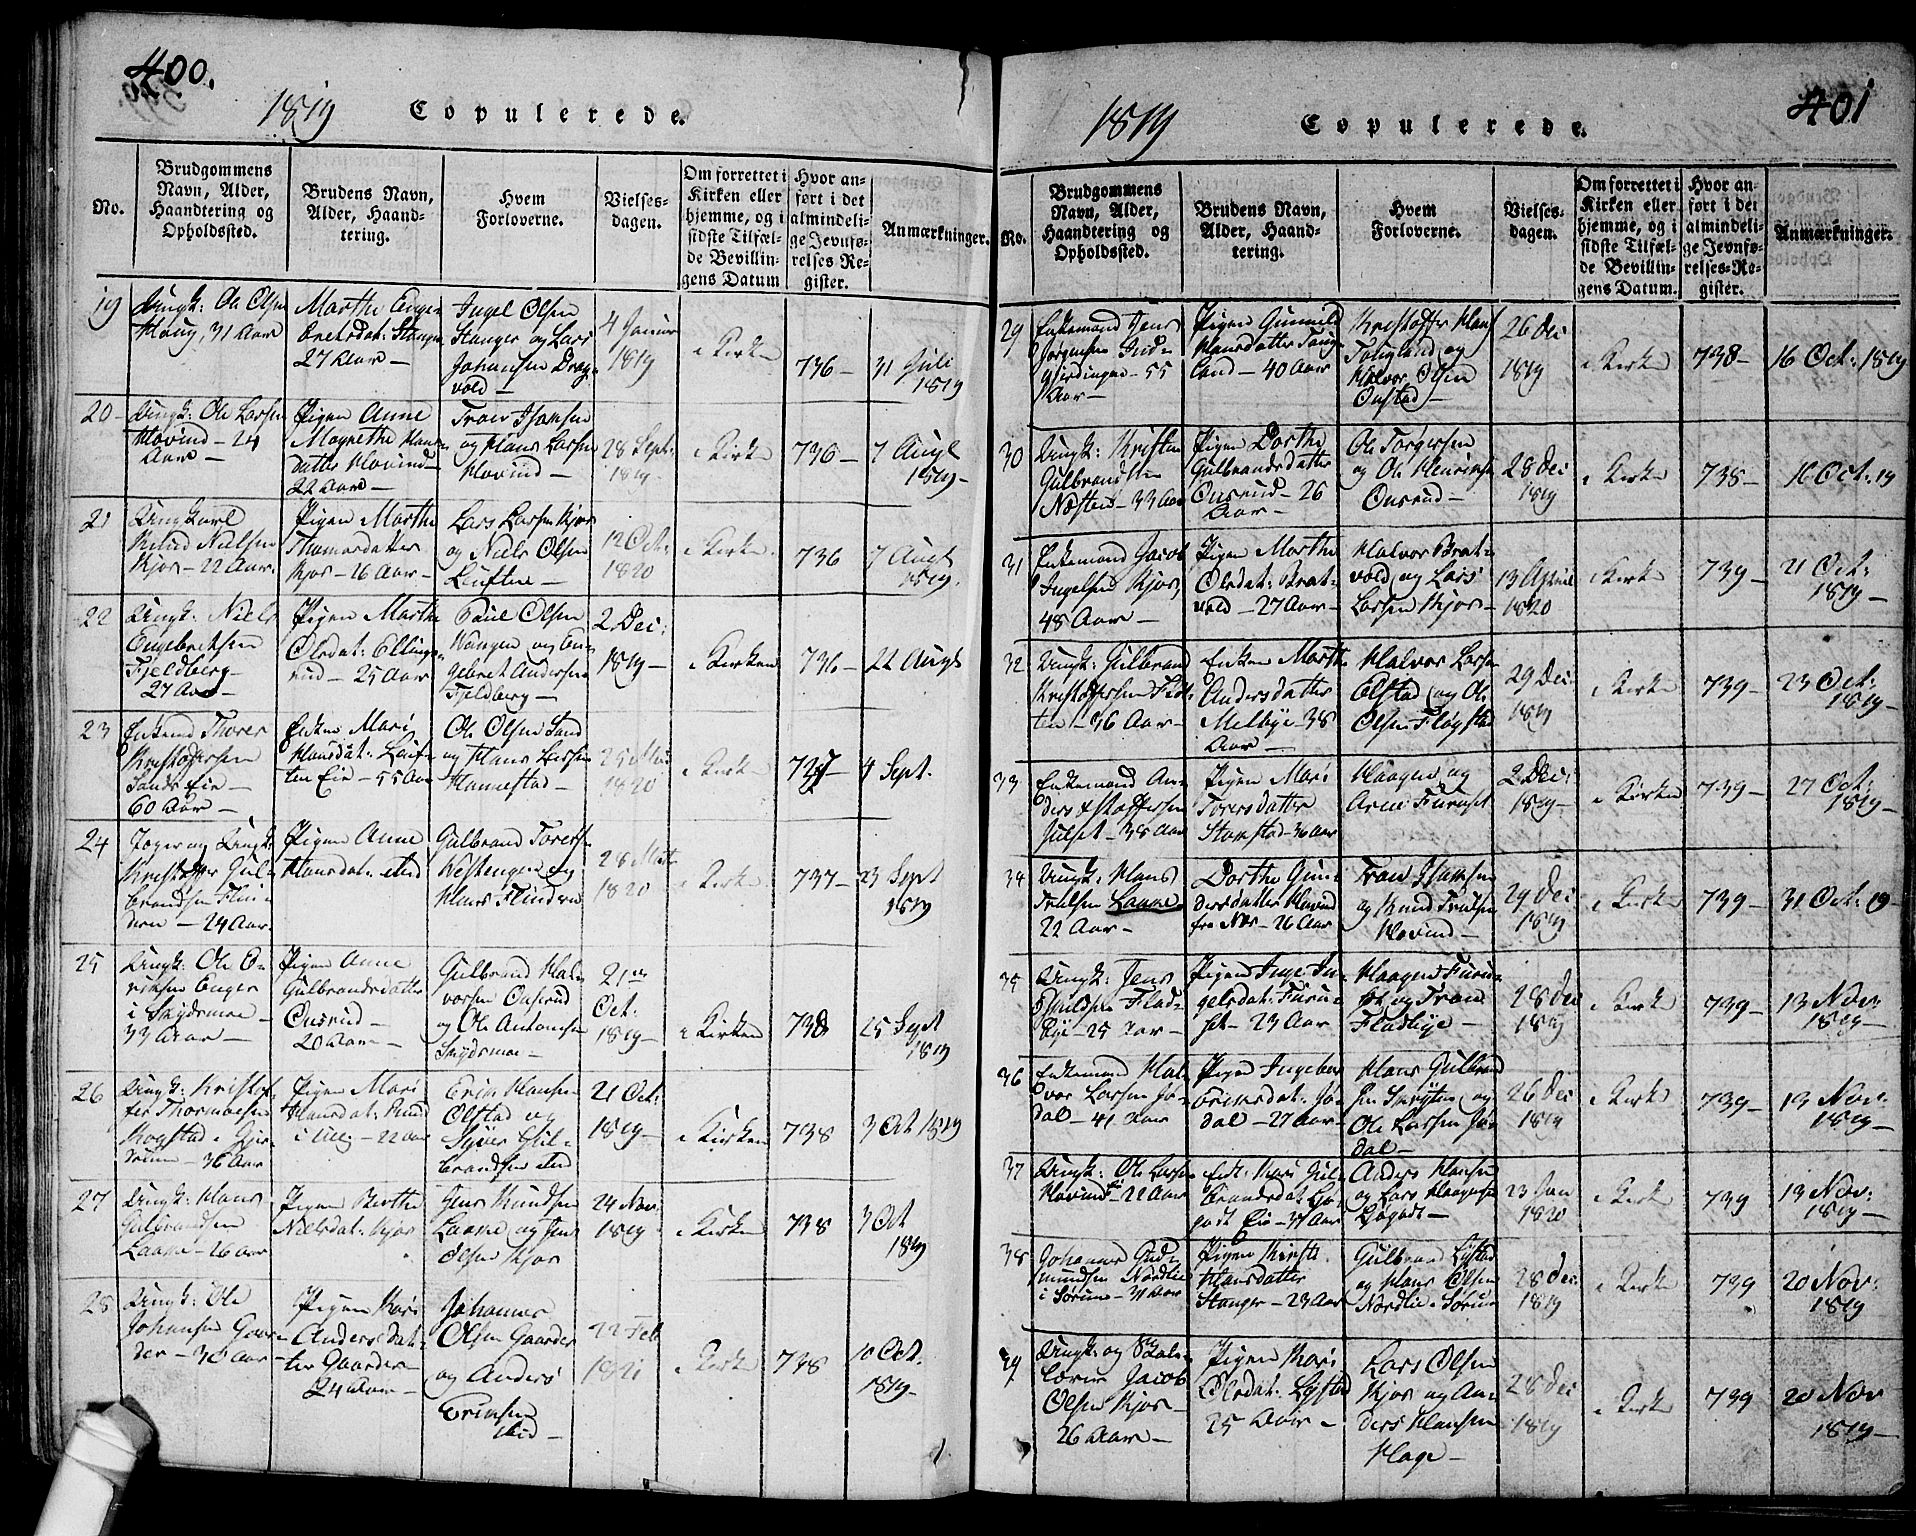 400.
1819 Copulerede.
No.
Brudgommens
Navn, Alder,
Haandtering og
Opholdssted.
Brudens Navn,
Alder, Haand-
tering.
Hvem
Forloverne.
Vielses-
dagen.
Om forrettet i
Kirken eller
hjemme, og i
sidste Tilfæl-
de Bevillin-
gens Datum
Hvor an-
ført i det
almindeli-
ge Jevnfø-
relses-Re-
gister.
Anmærkninger.
19
Ungk: Ole Olsen
Houg, 31 Aar
Marthe Enge-
bretsdat: Stanger
27 Aar
Ingel Olsen
Stanger og Lars
Johansen Drog-
vold
4 Januar
1819
i Kirke
736
31 Juli
1819
20
Ungk: Ole Larsen
Hovind - 24
Aar
Pigen Anne
Magrethe Hans-
datter Hovind
22 Aar
Tron Isaksen
og Hans Larsen
Hovind
28 Sept:
1819
i Kirke
736
7 Augt
1819
21
Ungkarl
Nielsen
Kjos - 22 Aar
Pigen Marthe
Thomasdatter
Kjos - 26 Aar
Lars Larsen Kjos
og Niels Olsen
12 Oct:
1820
i Kirke
736
7 Augt
1819
22
Ungk: Niels
Engebretsen
Fjeldberg
27 Aar
Pigen Marthe
Olsdat: Ellings-
rud - 25 Aar
Paul Olsen
og En-
gebret Andersen
Fjeldberg
2 Dec:
1819
i Kirken
736
22 Augt
23
Enkemd Thorer
Kristoffersen
Sands Eie
60 Aar
Enken Mari
Hansdat:
Eie - 55 Aar
Ole Olsen Sand
og Hans Larsen
Hannestad
1820
i Kirke
737
4 Sept.
24
Jæger og Ungk:
Kristoffer Gul-
brandsen Flin-
deren - 24 Aar
Pigen Anne
Hansdat: ibid
Gulbrand Toresen
Westengen og
Hans Flindren
28 Mart
1820
i Kirke
737
23 Sept
1819
25
Ungk: Ole E-
riksen Enger
i Skydsmoe
33 Aar
Pigen Anne
Gulbrandsdatter
Onsrud
20 Aar
Gulbrand Hal-
vorsen Onsrud
og Ole Antonsen
Skydsmoe
21
Oct:
1819
i Kirken
738
25 Sept
1819
26
Ungk: Kristof-
fer Thormodsen
Rogstad i Gjer-
drum - 36 Aar
Pigen Mari
Hansdat:
22 Aar
Erik Hansen
Olstad og
Syver Gul-
brandsen ibid
21 Oct:
1819
i Kirken
738
3 Oct 1819
27
Ungk: Hans
Gulbrandsen
Laake - 26 Aar
Pigen Berthe
Nielsdat: Kjos
Jens Knudsen
Laake og Jens
Olsen Kjos
24 Nov:
1819
i Kirken
738
3 Oct
1819
28
Ungk: Ole
Johansen Gaar-
der - 30 Aar
Pigen Kari
Andersdat-
ter Gaarder
24 Aar
Johannes
Olsen Gaarder
og Anders
Eriksen
ibid
22 Feb
1821
i Kirke
738
10 Oct:
1819
401
1819 Copulerede.
No.
Brudgommens
Navn, Alder,
Haandtering og
Opholdssted.
Brudens Navn,
Alder, Haand-
tering.
Hvem
Forloverne.
Vielses-
dagen.
Om forrettet i
Kirken eller
hjemme, og i
sidste Tilfæl-
de Bevillin-
gens Datum.
Hvor an-
ført i det
almindeli-
ge Jevnfø-
relses-Re-
gister.
Anmærkninger.
29
Enkemand Jens
Jørgensen Ind-
gjerdingen - 55
Aar
Pigen Gunnild
Hansdatter Toug-
land - 40 Aar
Kristoffer Hans
Tougland og
Halvor Olsen
Onstad
26 Dec
1819
i Kirke
738
16 Oct: 1819
30
Ungk: Kristen
Gulbrandsen
Næsten - 33 Aar
Pigen Dorthe
Gulbrandsdatter
Onsrud - 26
Aar
Ole Torgersen
og Ole Henriksen
Onsrud
28 Dec
1819
i Kirke
738
16 Oct: 19
31
Enkemand Jacob
Ingelsen Kjos,
48 Aar
Pigen Marthe
Olsdat: Brat-
vold - 27 Aar
Halvor Brat-
vold og Lars
Larsen Kjos
13 April
1820
i Kirke
739
21 Oct:
1819
32
Ungk: Gulbrand
Kristoffersen
36 Aar
Enken Marthe
Andersdatter
Melbye 38
Aar
Halvor Larsen
Olstad og Ole
Olsen Fløgstad
29 Dec:
1819
i Kirke
739
23 Oct:
1819
33
Enkemand An-
ders Xstoffersen
Julset - 38 Aar
Pigen Mari
Toresdatter
Stomstad - 36 Aar
Haagen og
Arne Furuset
2 Dec:
1819
i Kirken
739
27 Oct:
1819
34
Ungk: Hans
Trulsen Laake
22 Aar
Dorthe Gun-
dersdatter Hovind
fra Næs - 26 Aar
Tron Isaksen
og Knud Trulsen
Hovind
29 Dec:
1819
i Kirke
739
31 Oct: 19
35
Ungk: Jens
Flad-
bye - 25 Aar
Pigen Inge In-
gelsdat: Furu-
set - 23 Aar
Haagen Furu-
set og Tron
Fladbye
28 Dec
1819
i Kirke
739
13 Nov:
1819
36
Enkemand Hal-
vor Larsen Jø-
dal - 41 Aar
Pigen Ingebor
Eriksdat: Jø-
dal - 27 Aar
Hans Gulbrand
og
Ole Larsen Jø-
dal
26 Dec
1819
i Kirke
739
13 Nov:
1819
37
Ungk: Ole Larsen
Hovind - 22 Aar
Kari Gul-
brandsdat:
Eie - 37 Aar
Anders Hansen
og Lars Haagensen
23 Jan
1820
i Kirke
739
13 Nov:
1819
38
Johannes Gud-
mundsen Nordlie
i Sørum - 31 Aar
Pigen Kirsti
Hansdatter
Stanger - 23 Aar
Gulbrand Lystad
og Hans Olsen
Nordlie i Sørum
28 Dec:
1819
i Kirke
739
20 Nov:
1819
39
Ungk: og Skole-
lærer Jacob
Olsen Kjos
26 Aar
Pigen Kari
Olsdat: Lystad
25 Aar
Lars Olsen
Kjos og An-
ders Hansen
Hage
28 Dec
1819
i Kirke
739
20 Nov
1819